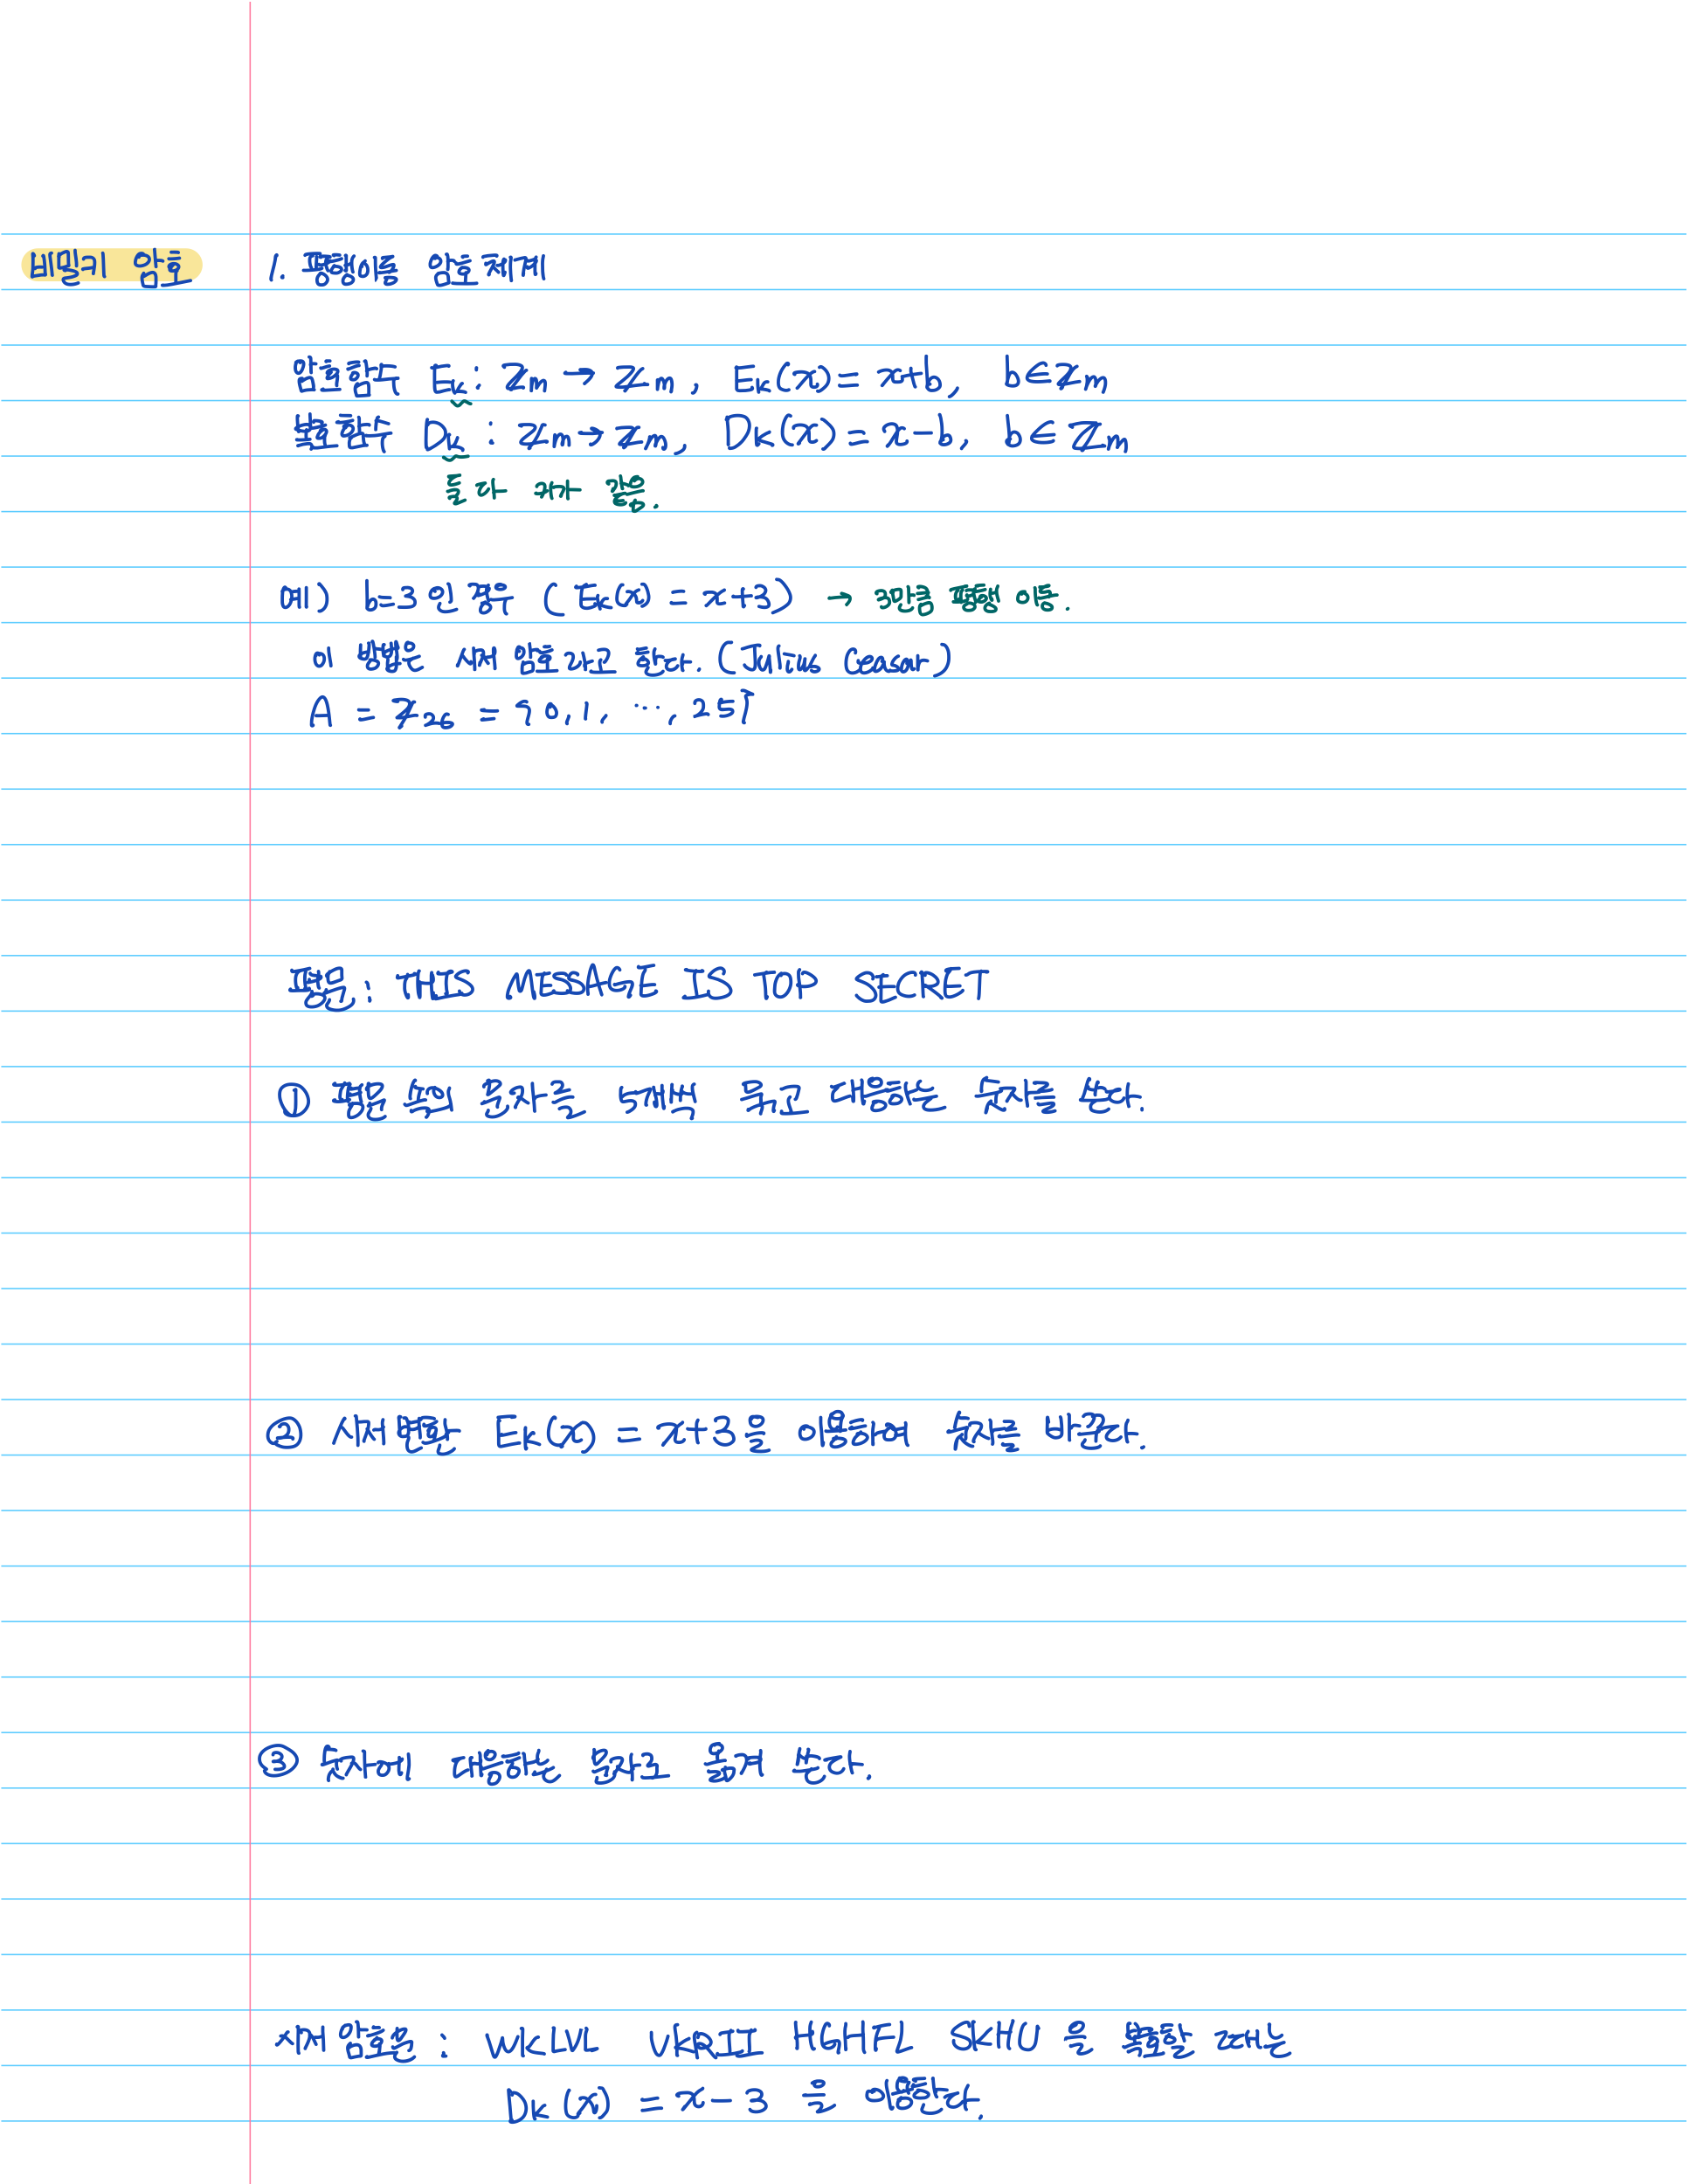 비밀키 암호
1. 평행이동 암호체계
암호함수 Eₖ : ℤm → ℤm , Eₖ(x) = x+b, b∈ℤm
복호함수 Dₖ : ℤm → ℤm, Dₖ(x) = x-b, b∈ℤm
둘 다 키가 같음.
예) b=3 인 경우 ( Eₖ(x) = x+3 ) → 3만큼 평행 이동.
이 방법은 시저 암호라고 한다. (Julius Ceasar)
A = ℤ₂₆ = {0, 1, ⋯, 25}
평문 : THIS MESSAGE IS TOP SECRET
① 평문 속의 문자를 5개씩 묶고 대응하는 숫자를 쓴다.
② 시저 변환 Eₖ(x) = x+3을 이용하여 숫자를 바꾼다.
③ 숫자에 대응하는 문자로 옮겨 쓴다.
시저 암호문 : WKLVL VKRII HGHFL SKHU 을 복호할 때는
Dₖ(x) = x-3 을 이용한다.